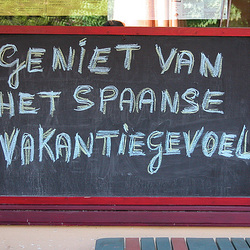 GENIET VAN
HET SPAANSE
VAKANTIEGEVOEL